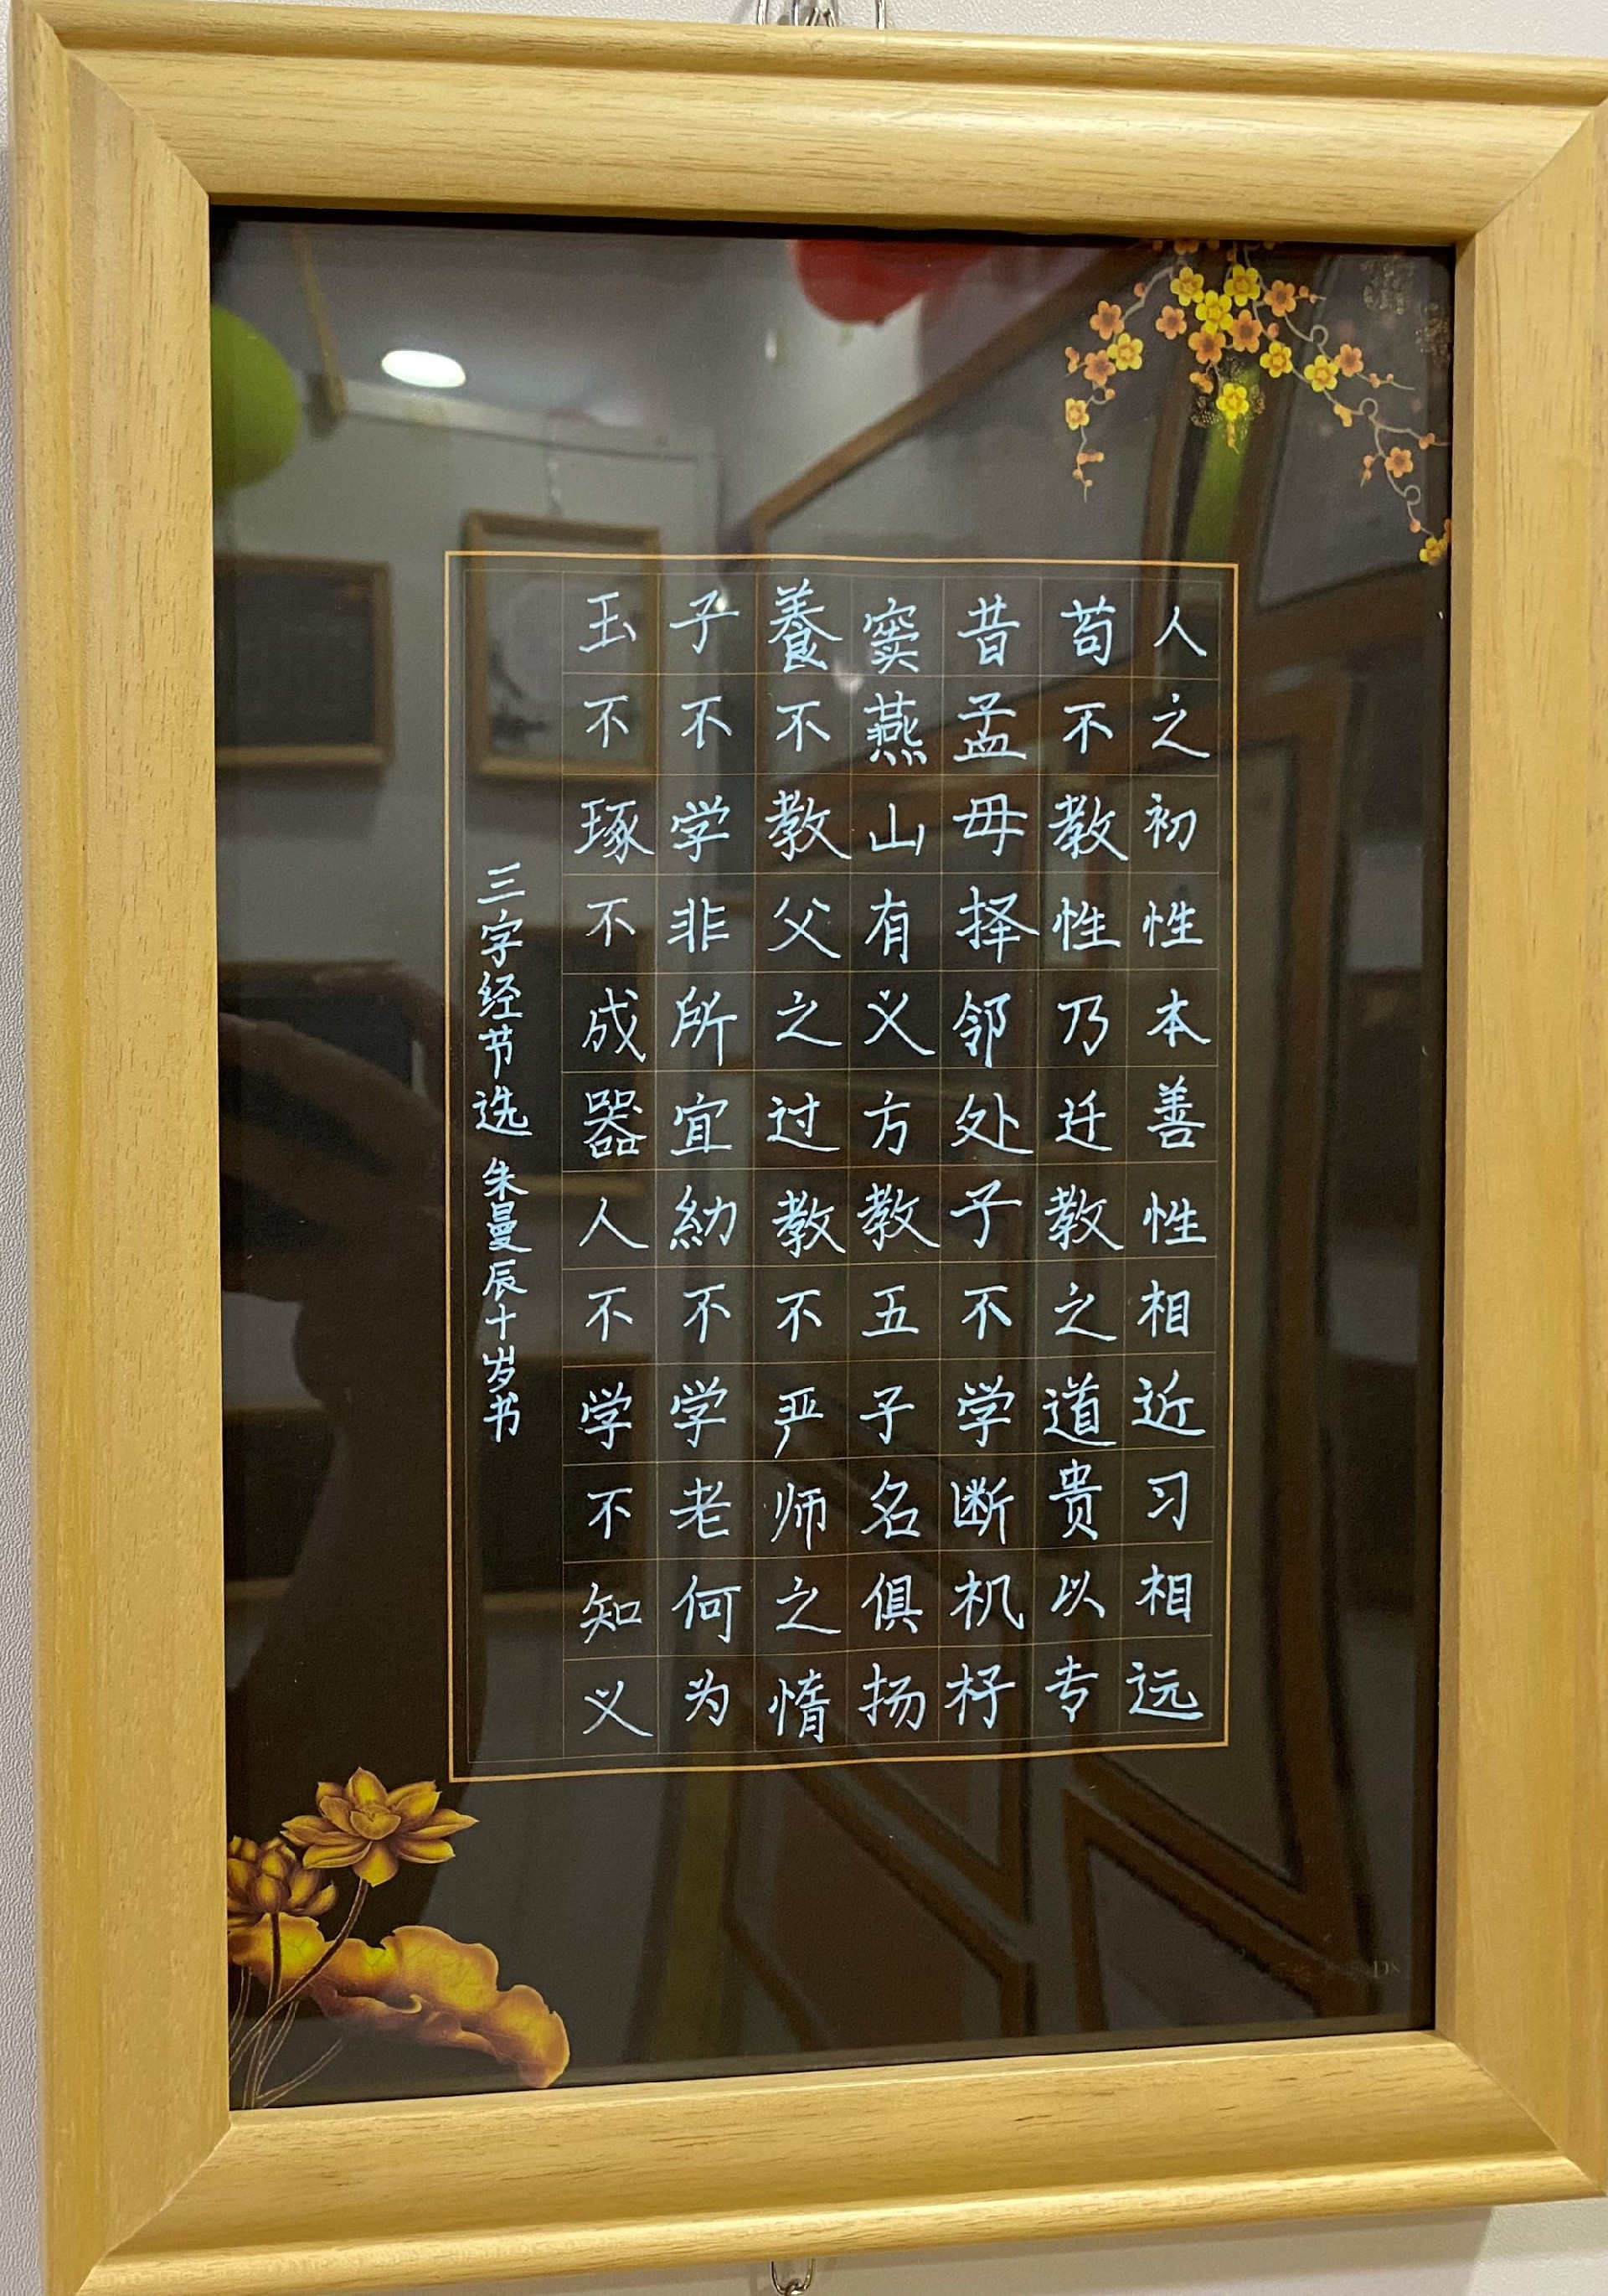 人之初性本善性相近习相远
苟不教性乃迁教之道贵以专
昔孟母择邻处子不学断机杼
窦燕山有义方教五子名俱扬
養不教父之过教不严师之惰
子不学非所宜幼不学老何为
玉不琢不成器人不学不知义
三字经节选 朱曼辰十岁书